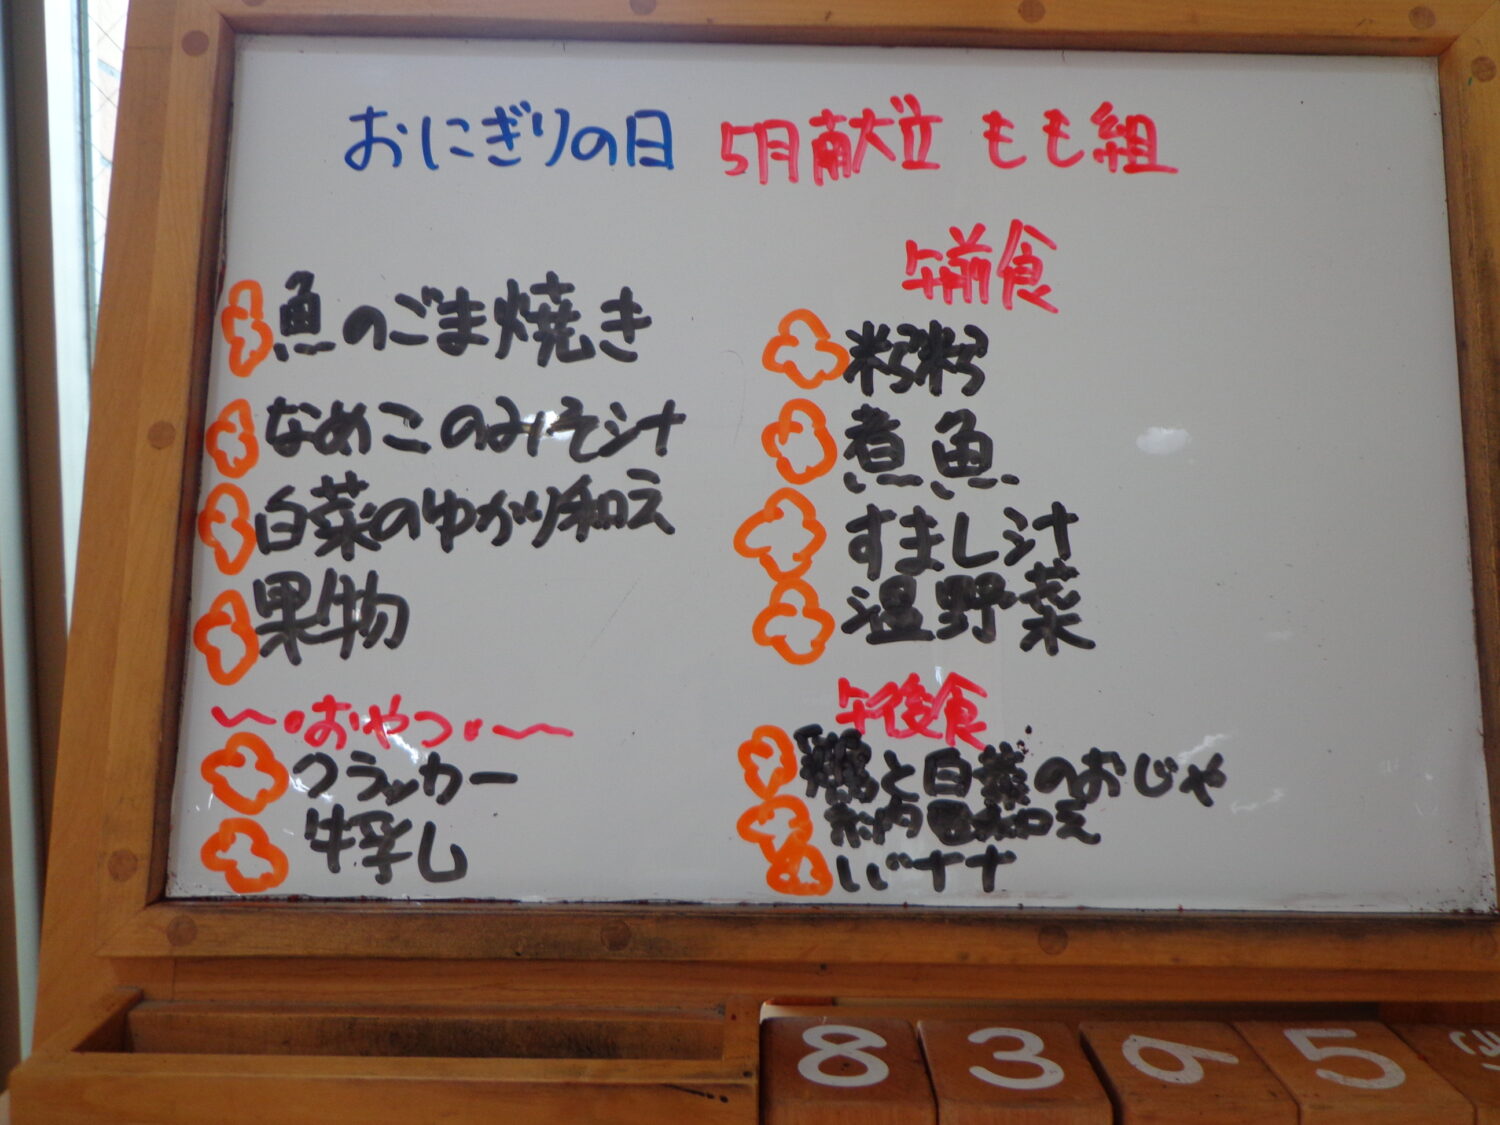 おにぎりの日 5月献立 もも組
魚のごま焼き
なめこのみそ汁
白菜のゆかり和え
果物
〜・おやつ・〜
クラッカー
牛乳
午前食
煮魚
すまし汁
温野菜
午後食
鶏と白菜のおじや
和え
バナナ
8 3 6 5